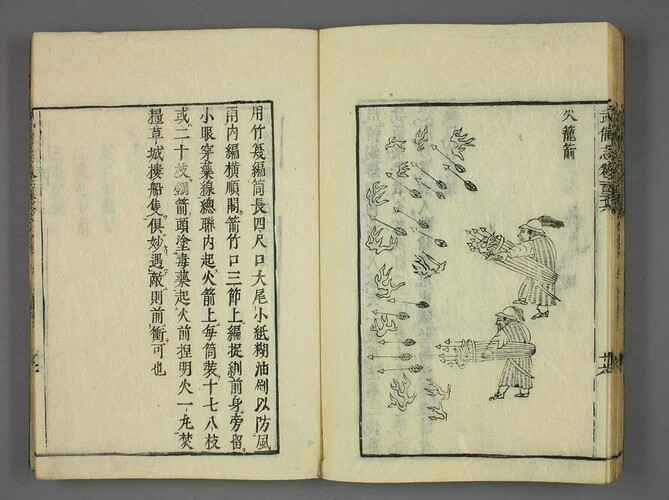 武備志卷一百二十六
火籠箭
廿六
用竹篾編筒長四尺口大尾小紙糊油刷以防風
雨內編橫順閣箭竹口三節上編提綁前身旁留
小眼穿藥線總聯內起火箭上每筒裝十七八枝
或二十枝鋼箭頭塗毒藥起火前捏明火一丸焚
糧草城樓船隻俱妙遇敵則前衝可也